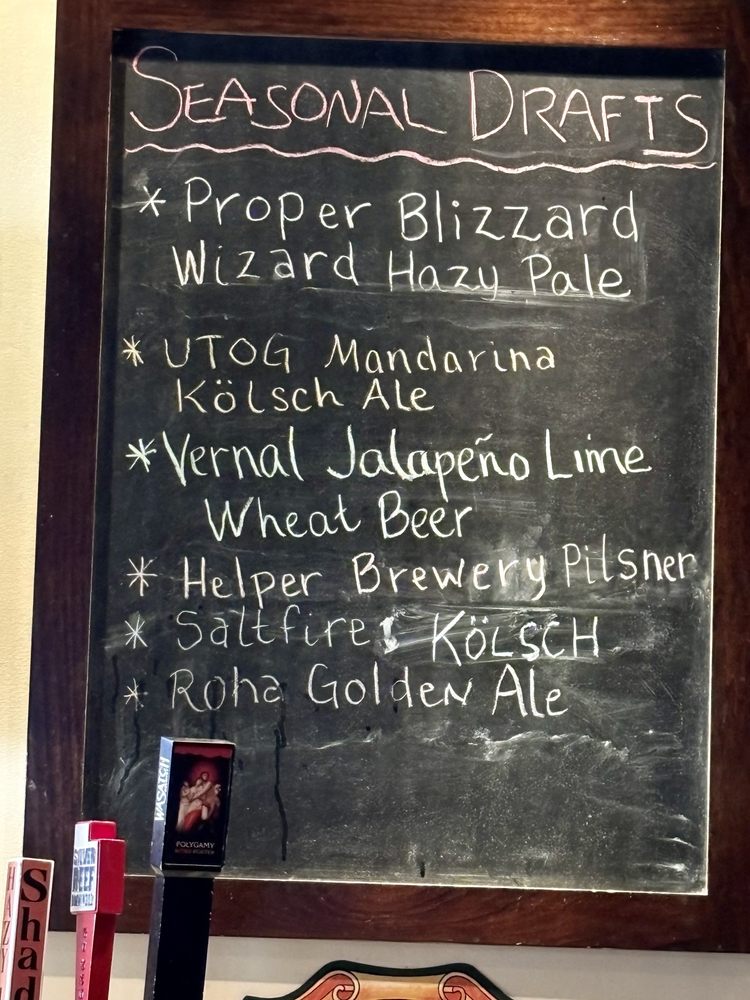 SEASONAL DRAFTS
* Proper Blizzard
Wizard Hazy Pale
* UTOG Mandarina
Kölsch Ale
* Vernal Jalapeño Lime
Wheat Beer
* Helper Brewery Pilsner
* Saltfire KÖLSCH
* Roha Golden Ale
WASATCH
POLYGAMY
HAZY
Shad